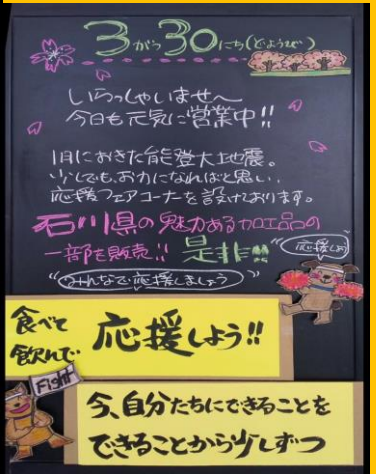 3がつ30にち(どようび)
いらっしゃいませ〜
今日も元気に営業中!!
1月におきた能登大地震。
少しでも、お力になればと思い、
応援フェアコーナーを設けております。
石川県の魅力ある加工品の
一部を販売!! 是非!!!
応援しよう
"みんなで応援しましょう"
食べて
飲んで
応援しよう!!
Fight
今、自分たちにできることを
できることから少しずつ